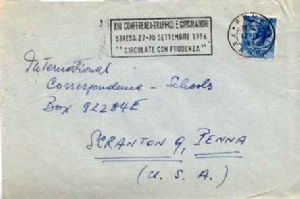 XIII CONFERENZA TRAFFICO E CIRCOLAZIONE
STRESA 27-30 SETTEMBRE 1956
"CIRCOLATE CON PRUDENZA"
International
Correspondence - Schools
Box 92284E
SCRANTON 9, PENNA
(U. S. A.)